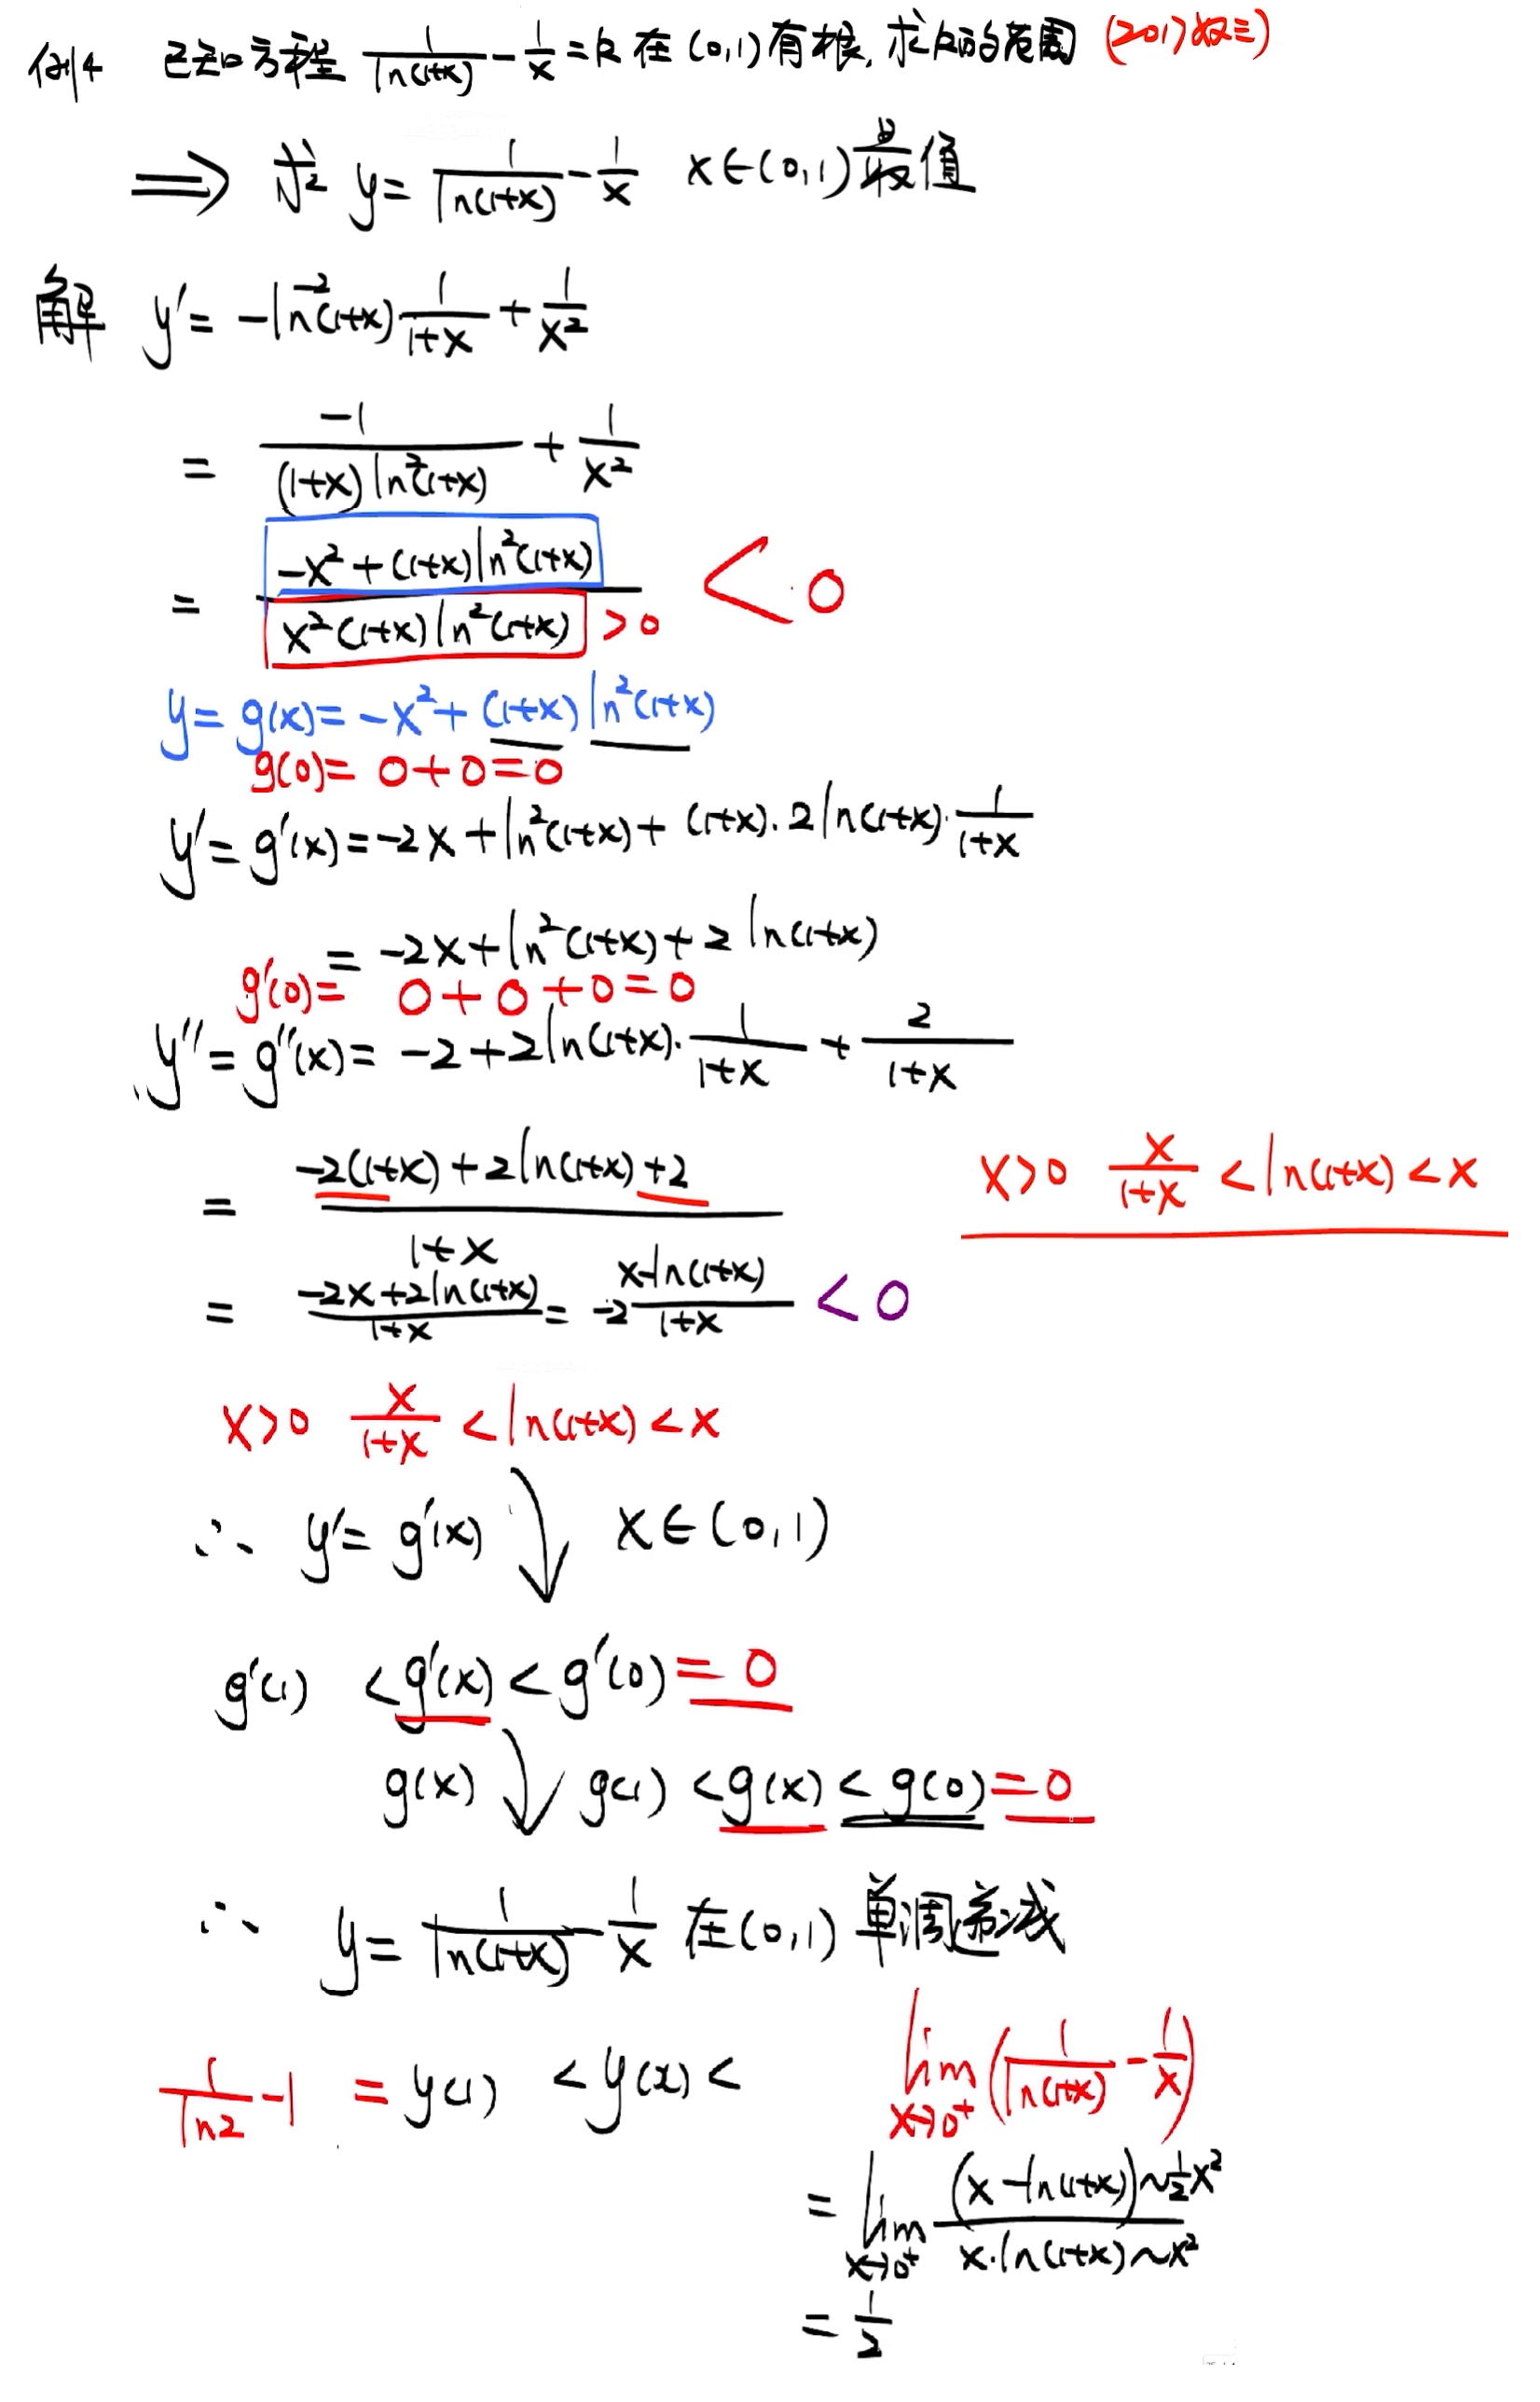 例4 已知方程 1/ln(1+x) - 1/x = k 在(0,1)有根,求k的范围 (2017数三)
⟹ 求 y = 1/ln(1+x) - 1/x x∈(0,1) 最值
解 y' = -ln⁻²(1+x) 1/(1+x) + 1/x²
= -1/((1+x)ln²(1+x)) + 1/x²
= (-x²+(1+x)ln²(1+x))/(x²(1+x)ln²(1+x)) >0 <0
y = g(x) = -x²+(1+x)ln²(1+x)
g(0) = 0+0=0
y' = g'(x) = -2x+ln²(1+x)+(1+x)·2ln(1+x)·1/(1+x)
= -2x+ln²(1+x)+2ln(1+x)
g'(0) = 0+0+0=0
y'' = g''(x) = -2+2ln(1+x)·1/(1+x) + 2/(1+x)
= (-2(1+x)+2ln(1+x)+2)/(1+x)
x>0 x/(1+x) < ln(1+x) < x
= (-2x+2ln(1+x))/(1+x) = -2 (x-ln(1+x))/(1+x) <0
x>0 x/(1+x) < ln(1+x) < x
∴ y' = g'(x) ↘ x∈(0,1)
g'(1) < g'(x) < g'(0) = 0
g(x) ↘ g(1) < g(x) < g(0) = 0
∴ y = 1/ln(1+x) - 1/x 在(0,1)单调递减
1/ln2 - 1 = y(1) < y(x) < lim x→0⁺ (1/ln(1+x) - 1/x)
= lim x→0⁺ ((x-ln(1+x))~½x²)/(x·ln(1+x)~x²)
= 1/2